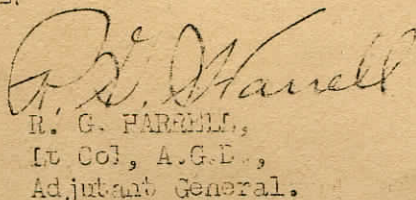 R. G. Harrell
R. G. HARRELL,
Lt Col, A.G.D.,
Adjutant General.